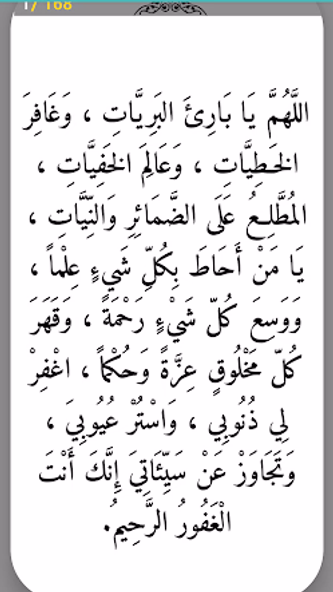 1/ 168
اللَّهُمَّ يَا بَارِئَ البَرِيَّاتِ ، وَغَافِرَ
الخَطِيَّاتِ ، وَعَالِمَ الخَفِيَّاتِ ،
المُطَّلِعُ عَلَى الضَّمَائِرِ وَالنِّيَّاتِ ،
يَا مَنْ أَحَاطَ بِكُلِّ شَيءٍ عِلْماً ،
وَوَسِعَ كُلّ شَيْءٍ رَحْمَةً ، وَقَهَرَ
كُلّ مَخْلُوقٍ عِزَّةً وَحُكْماً ، اغْفِرْ
لِي ذُنُوبِي ، وَاسْتُرْ عُيُوبِيَ ،
وَتَجَاوَزْ عَنْ سَيِّئَاتِيَ إِنَّكَ أَنْتَ
الْغَفُورُ الرَّحِيمُ.